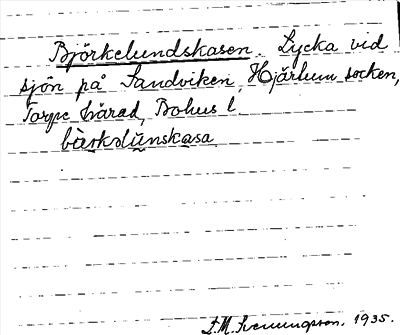 Björkelundskasen. Lycka vid
sjön på Sandviken, Hjärtum socken,
Torpe härad, Bohus l.
bärkslunskasa
D.M. Svenungsson. 1935.